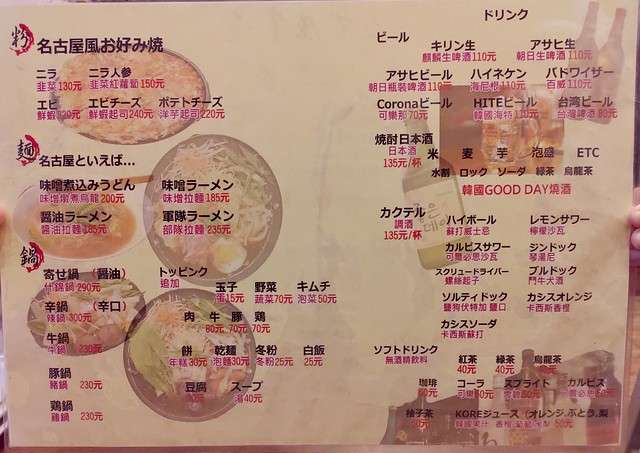 粉 名古屋風お好み焼
ニラ ニラ人参
韭菜130元 韭菜紅蘿蔔150元
エビ エビチーズ ポテトチーズ
鮮蝦220元 鮮蝦起司240元 洋芋起司220元
麵 名古屋といえば…
味噌煮込みうどん 味噌ラーメン
味噌燉煮烏龍200元 味噌拉麵185元
醤油ラーメン 軍隊ラーメン
醬油拉麵185元 部隊拉麵235元
鍋
寄せ鍋 (醤油)
什錦鍋290元
辛鍋 (辛口)
辣鍋 300元
牛鍋
牛鍋 230元
豚鍋
豬鍋 230元
鶏鍋
雞鍋 230元
トッピンク
追加
玉子 野菜 キムチ
蛋15元 蔬菜70元 泡菜50元
肉 牛 豚 鶏
80元 70元 70元
餅 乾麺 冬粉 白飯
年糕30元 泡麵30元 冬粉25元 25元
豆腐 スープ
湯40元
ドリンク
ビール
キリン生 アサヒ生
麒麟生啤酒110元 朝日生啤酒110元
アサヒビール ハイネケン バドワイザー
朝日瓶裝啤酒110元 海尼根110元 百威110元
Coronaビール HITEビール 台湾ビール
可樂那70元 韓國海特110元 台灣啤酒80元
焼酎日本酒
日本酒
135元/杯
米 麦 芋 泡盛 ETC
水割 ロック ソーダ 緑茶 烏龍茶
韓國GOOD DAY燒酒
カクテル
調酒
135元/杯
ハイボール レモンサワー
蘇打威士忌 檸檬沙瓦
カルピスサワー ジンドック
可爾必思沙瓦 琴湯尼
スクリュードライバー ブルドック
螺絲起子 鬥牛犬酒
ソルティドック カシスオレンジ
鹽狗伏特加 鹽口 卡西斯香橙
カシスソーダ
卡西斯蘇打
ソフトドリンク
無酒精飲料
紅茶 緑茶 烏龍茶
40元 40元
珈琲 コーラ スプライト カルピス
柚子茶 KOREジュース(オレンジ.ぶとう.梨
韓國果汁 香橙.葡萄.水梨 50元